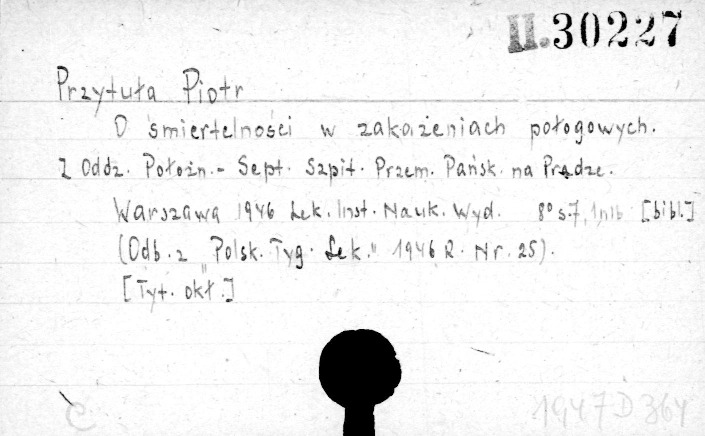 II.30227
Przytuła Piotr
O śmiertelności w zakażeniach połogowych.
Z Oddz. Położn.- Sept. Szpit. Przem. Pańsk. na Prądze.
Warszawa 1946 Lek. Inst. Nauk. Wyd. 8° s.7, 1 nlb. [bibl.]
(Odb. z „Polsk. Tyg. Lek." 1946 R. Nr. 25).
[Tyt. okł.]
C 1947 D 364